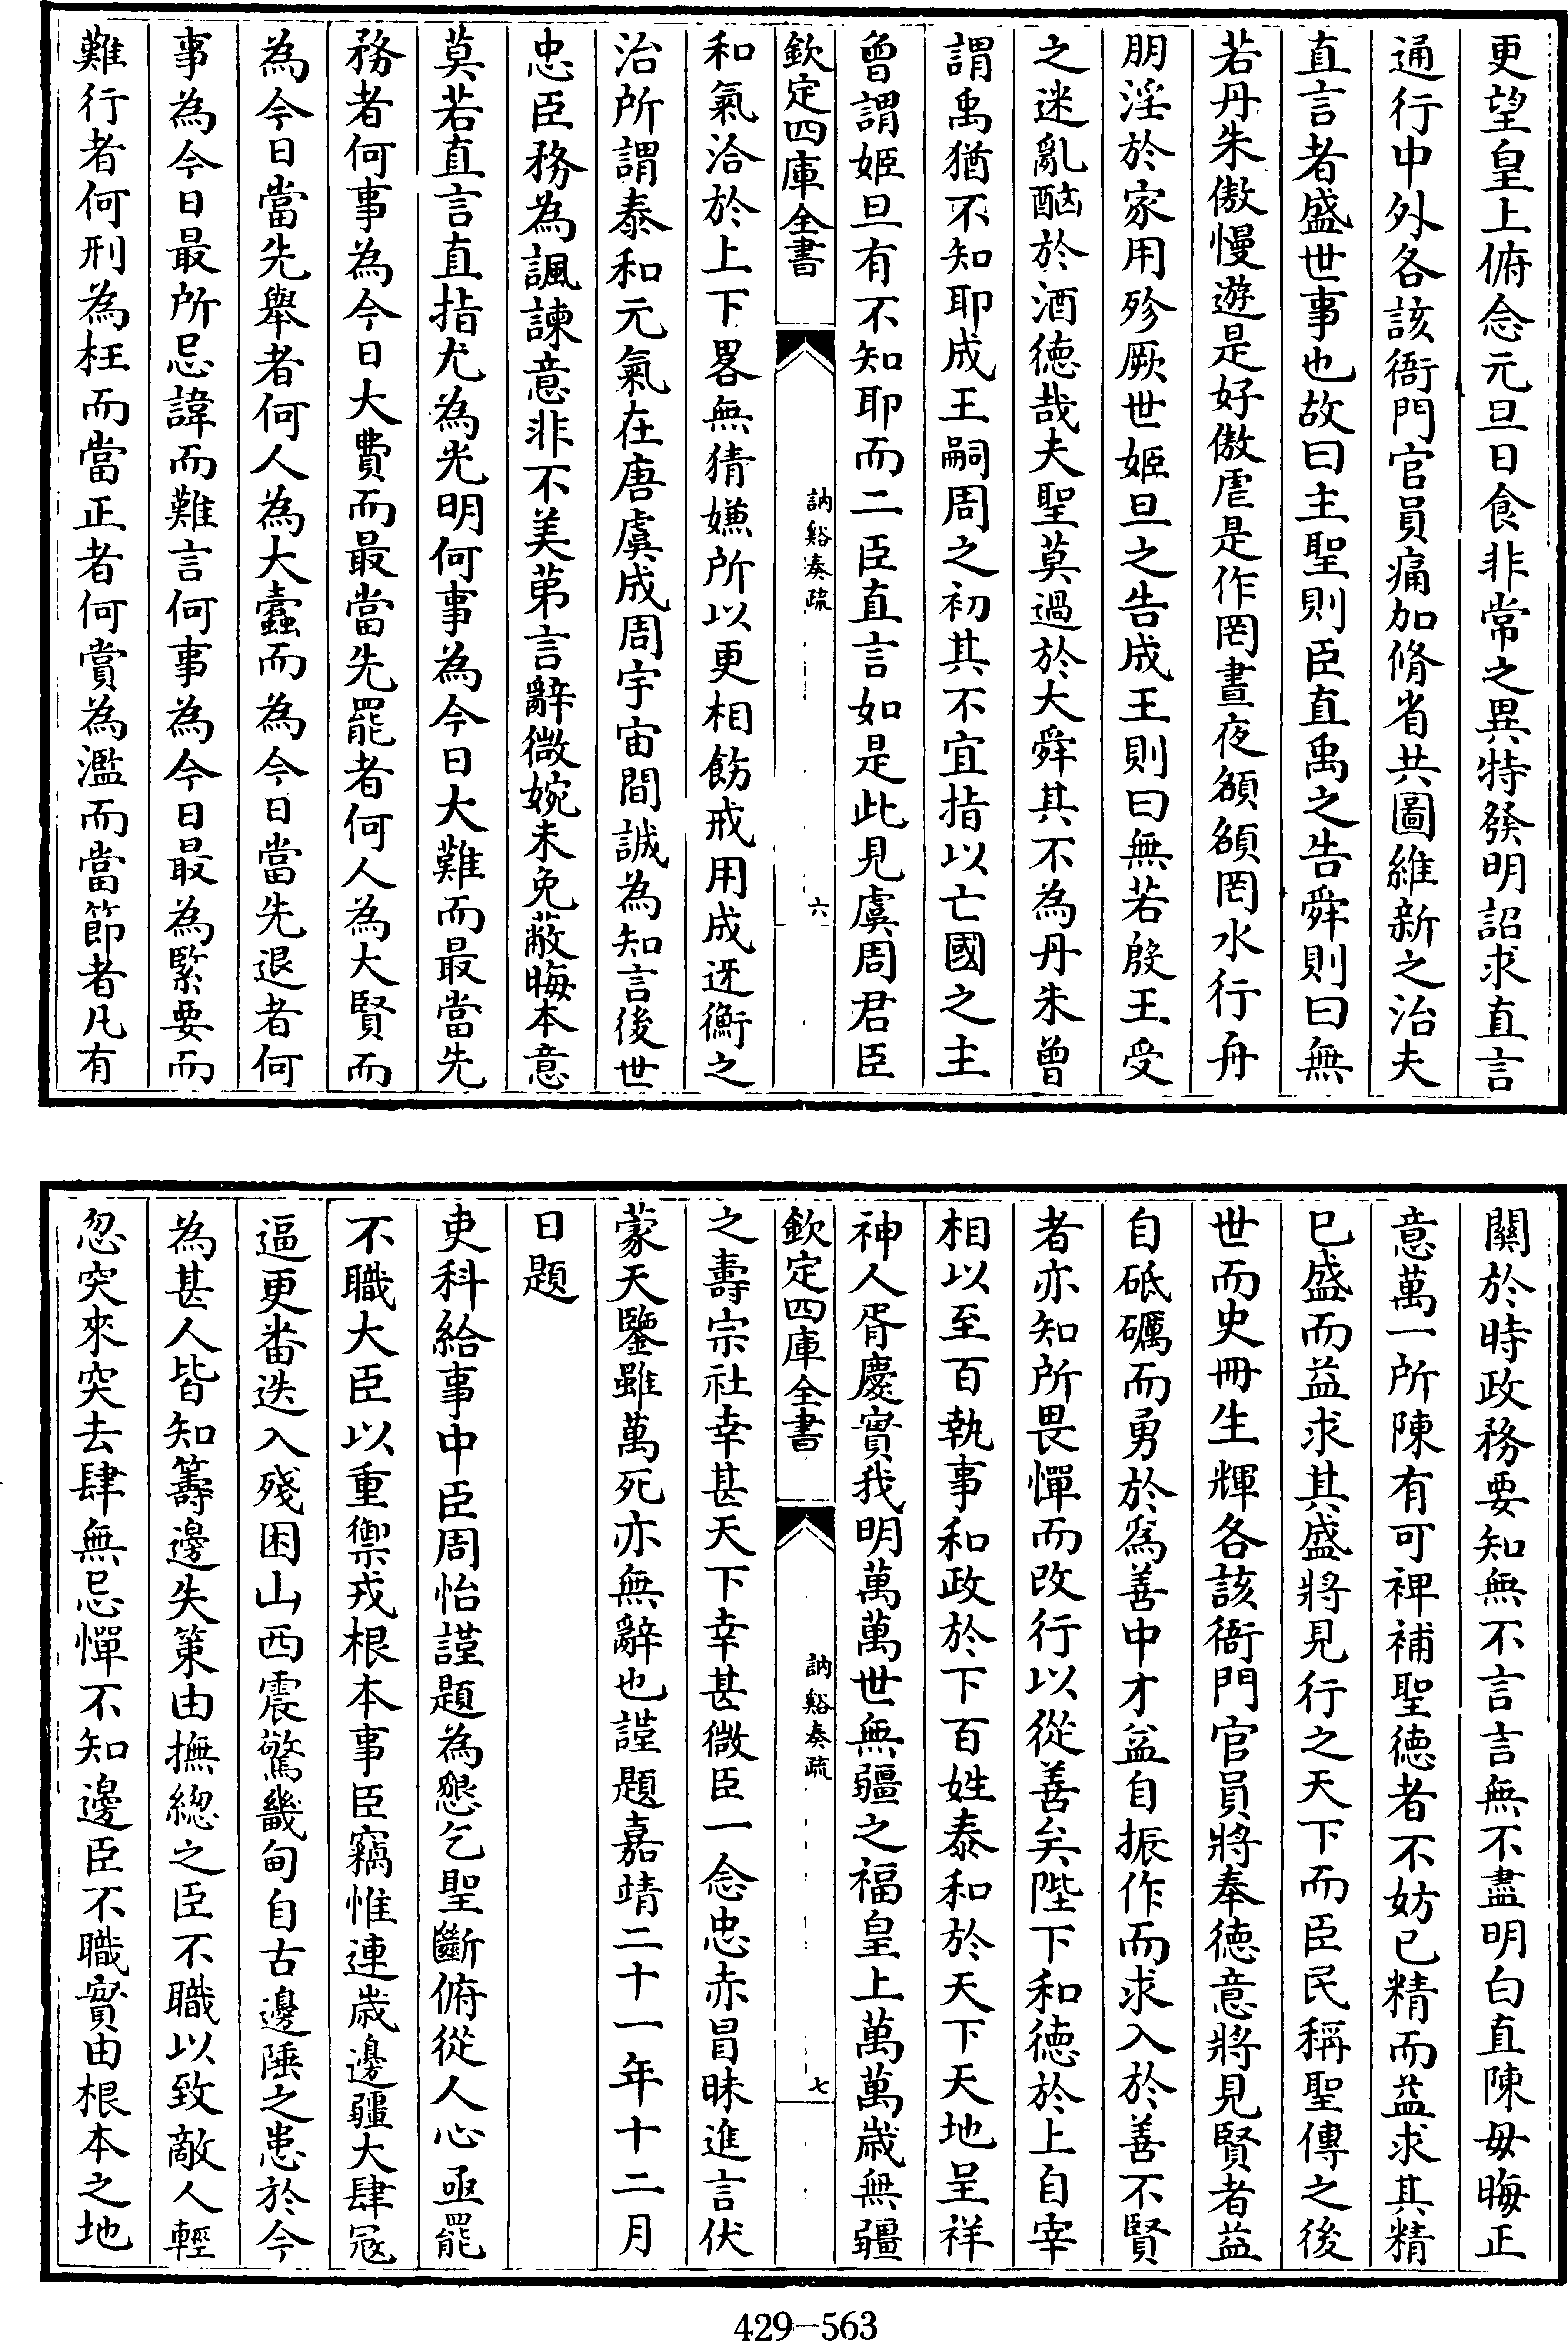 更望皇上俯念元旦日食非常之異特發明詔求直言
通行中外各該衙門官員痛加脩省共圖維新之治夫
直言者盛世事也故曰主聖則臣直禹之告舜則曰無
若丹朱傲慢遊是好傲虐是作罔晝夜頟頟罔水行舟
朋淫於家用殄厥世姬旦之告成王則曰無若殷王受
之迷亂酗於酒德哉夫聖莫過於大舜其不為丹朱曾
謂禹猶不知耶成王嗣周之初其不宜指以亡國之主
曾謂姬旦有不知耶而二臣直言如是此見虞周君臣
欽定四庫全書
訥谿奏疏
六
和氣洽於上下畧無猜嫌所以更相飭戒用成迓衡之
治所謂泰和元氣在唐虞成周宇宙間誠為知言後世
忠臣務為諷諫意非不美第言辭微婉未免蔽晦本意
莫若直言直指尤為光明何事為今日大難而最當先
務者何事為今日大費而最當先罷者何人為大賢而
為今日當先舉者何人為大蠹而為今日當先退者何
事為今日最所忌諱而難言何事為今日最為緊要而
難行者何刑為枉而當正者何賞為濫而當節者凡有
關於時政務要知無不言言無不盡明白直陳毋晦正
意萬一所陳有可裨補聖德者不妨已精而益求其精
已盛而益求其盛將見行之天下而臣民稱聖傳之後
世而史冊生輝各該衙門官員將奉德意將見賢者益
自砥礪而勇於為善中才益自振作而求入於善不賢
者亦知所畏憚而改行以從善矣陛下和德於上自宰
相以至百執事和政於下百姓泰和於天下天地呈祥
神人胥慶實我明萬萬世無疆之福皇上萬萬歲無疆
欽定四庫全書
訥谿奏疏
七
之壽宗社幸甚天下幸甚微臣一念忠赤冒昧進言伏
蒙天鑒雖萬死亦無辭也謹題嘉靖二十一年十二月
日題
吏科給事中臣周怡謹題為懇乞聖斷俯從人心亟罷
不職大臣以重禦戎根本事臣竊惟連歲邊疆大肆寇
逼更番迭入殘困山西震驚畿甸自古邊陲之患於今
為甚人皆知籌邊失策由撫總之臣不職以致敵人輕
忽突來突去肆無忌憚不知邊臣不職實由根本之地
429-563